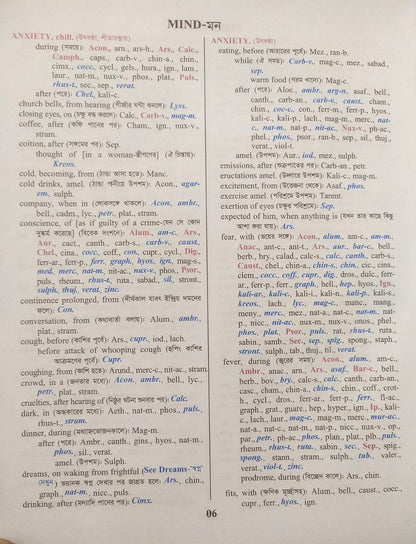 MIND-মন
ANXIETY, chill. (উৎকণ্ঠা, শীতাবস্থায়)
during (সময়ে): Acon., arn., ars-h., Ars., Calc.,
Camph., caps., carb-v., chin-a., chin.,
cimx., cocc., cycl., gels., hura., ign., lam.,
laur., nat-m., nux-v., phos., plat., Puls.,
rhus-t., sec., sep., verat.
after (পরে): Chel., kali-c.
church bells, from hearing (গীর্জার ঘণ্টা শুনলে): Lyss.
closing eyes, on (চক্ষু বন্ধ করলে): Calc., Carb-v., mag-m.
coffee, after (কফি পানের পর): Cham., ign., nux-v.,
stram.
coition, after (সঙ্গমের পর): Sep.
thought of [in a woman-স্ত্রীলোকের] (ঐ চিন্তায়):
Kreos.
cold, becoming, from (ঠাণ্ডা আসা হতে): Manc.
cold drinks, amel. (ঠাণ্ডা পানীয়ে উপশম): Acon., agar-
em., sulph.
company, when in (লোকসঙ্গে থাকলে): Acon., ambr.,
bell., cadm., lyc., petr., plat., stram.
conscience, of [as if guilty of a crime-যেন সে কোন
দুষ্কর্ম করেছে] (বিবেকে দংশন): Alum., am-c., Ars.,
Aur., cact., canth., carb-s., carb-v., caust.,
Chel., cina., cocc., coff., con., cupr., cycl., Dig.,
ferr-ar., ferr-p., ferr., graph., hyos., ign., mag-s.,
med., merc., nat-m., nit-ac., nux-v., phos., Psor.,
puls., rheum., rhus-t., ruta., sabad., sil., stront.,
sulph., thuj., verat., zinc.
continence prolonged, from (দীর্ঘকাল যাবৎ ইন্দ্রিয় দমনের
ফলে): Con.
conversation, from (কথাবার্তা বলায়): Alum., ambr.,
plat., stram.
cough, before (কাশির পূর্বে): Ars., cupr., iod., lach.
before attack of whooping cough (হুপিং কাশির
আক্রমণের পূর্বে): Cupr.
coughing, from (কাশি হতে): Arund., merc-c., nit-ac., stram.
crowd, in a (জনতার মধ্যে): Acon., ambr., bell., lyc.,
petr., plat., stram.
cruelties, after hearing of (নিষ্ঠুর ঘটনা শুনবার পর): Calc.
dark, in (অন্ধকারের মধ্যে): Aeth., nat-m., phos., puls.,
rhus-t., stram.
dinner, during (মধ্যাহ্নভোজনকালে): Mag-m.
after (পরে): Ambr., canth., gins., hyos., nat-m.,
phos., sil., verat.
amel. (উপশম): Sulph.
dreams, on waking from frightful (See Dreams-'স্বপ্ন'
দেখুন) ভয়ানক স্বপ্ন দেখার পর জাগ্রত হলে: Ars., chin.,
graph., nat-m., nicc., puls.
drinking, after (মদ্যাদি পানের পর): Cimx.
ANXIETY. (উৎকণ্ঠা)
eating, before (আহারের পূর্বে): Mez., ran-b.
while (ঐ সময়): Carb-v., mag-c., mez., sabad.,
sep.
warm food (গরম খাদ্যে): Mag-c.
after (পরে): Aloe., ambr., arg-n., asaf., bell.,
canth., carb-an., carb-v., caust., cham.,
chin., cic-c., con., ferr-m., ferr-p., hyos.,
kali-c., kali-p., lach., mag-m., merc., nat-
c., nat-m., nat-p., nit-ac., Nux-v., ph-ac.,
phel., phos., psor., ran-b., sep., sil., thuj.,
verat., viol-t.
amel. (উপশম): Aur., iod., mez., sulph.
emissions, after (শুক্রপাতের পর): Carb-an., petr.
eructations amel. (উদ্গারে উপশম): Kali-c., mag-m.
excitement, from (উত্তেজনা থেকে): Asaf., phos.
exercise amel. (পরিশ্রমে উপশম): Tarent.
exertion of eyes (চক্ষুর পরিশ্রমে): Sep.
expected of him, when anything is (যখন তার কাছে কিছু
আশা করা হয়): Ars.
fear, with (ভয়ের সঙ্গে): Acon., alum., am-c., am-m.,
Anac., ant-c., ant-t., Ars., aur., bar-c., bell.,
berb., bry., calad., calc-s., calc., canth., carb-s.,
Caust., chel., chin-a., chin-s., chin., cic., cina.,
clem., cocc., coff., cupr., dig., dros., dulc., ferr-
ar., ferr-p., ferr., graph., hell., hep., hyos., Ign.,
kali-ar., kali-c., kali-i., kali-n., kali-p., kali-s.,
kreos., lach., lyc., mag-c., manc., mang.,
meny., merc., mez., nat-a., nat-c., nat-m., nat-
p., nicc., nit-ac., nux-m., nux-v., onos., phel.,
phos., plat., Psor., puls., rat., rhus-t., ruta.,
sabin., samb., Sec., sep., spig., spong., staph.,
stront., sulph., tab., thuj., til., verat.
fever, during (জ্বরের সময়): Acon., alum., am-c.,
Ambr., anac., arn., Ars., asaf., Bar-c., bell.,
berb., bov., bry., calc-s., calc., canth., carb-an.,
casc., cham., chin-a., chin-s., chin., coff., crot-
c., cycl., dros., ferr-ar., ferr-p., ferr., fl-ac.,
graph., grat., guare., hep., hyper., ign., Ip., kali-
c., lach., laur., mag-c., mag-m., merc., mur-ac.,
nat-a., nat-c., nat-m., nat-p., nicc., nux-v., op.,
par., petr., ph-ac., phos., plan., plat., plb., puls.,
rheum., rhus-t., ruta., sabin., sec., Sep., spig.,
spong., stann., stram., sulph., tub., valer.,
verat., viol-t., zinc.
prodrome, during (বিচ্ছেদ কালে): Ars., chin.
fits, with (ক্ষণিক মূর্চ্ছাসহ): Alum., bell., caust., cocc.,
cupr., ferr., hyos., ign.
06